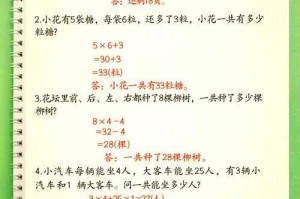 答：还剩18页。
2.小花有5袋糖，每袋6粒，还多了3粒，小花一共有多少
粒糖？
5×6+3
=30+3
=33(粒)
答：小花一共有33粒糖。
3.花坛里前、后、左、右都种了8棵柳树，一共种了多少棵
柳树？
8×4-4
=32-4
=28(棵)
答：一共种了28棵柳树。
4.小汽车每辆能坐4人，大客车能坐25人，有3辆小
汽车和1 辆大客车。问一共能坐多少人？
3×4+25×1=27(人)